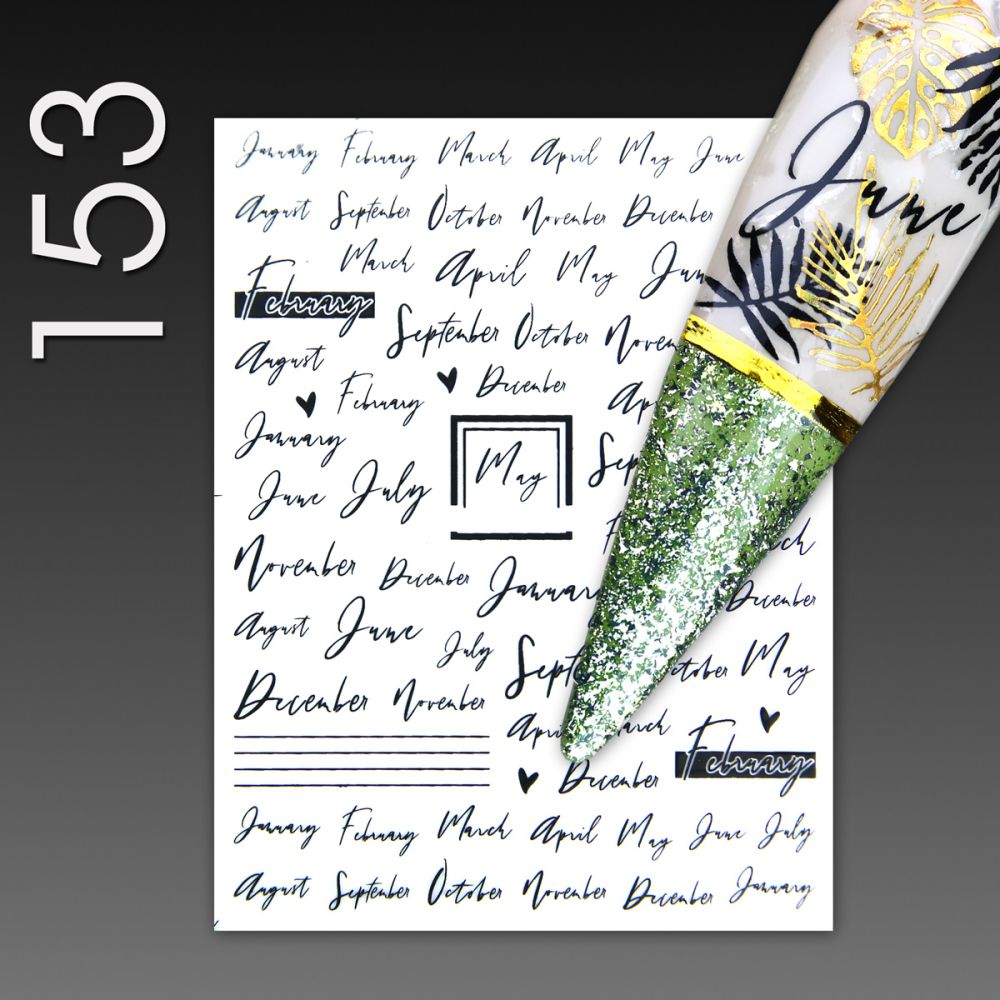 153
January February March April May June
June
August September October November December
March April May Jun
February
September October Novem
August
February December Ap
January
May Sep
June July
F ch
November December Januar December
August June
July Sept ctober May
December November
Apri arch
February
December
January February March April May June July
August September October November December January